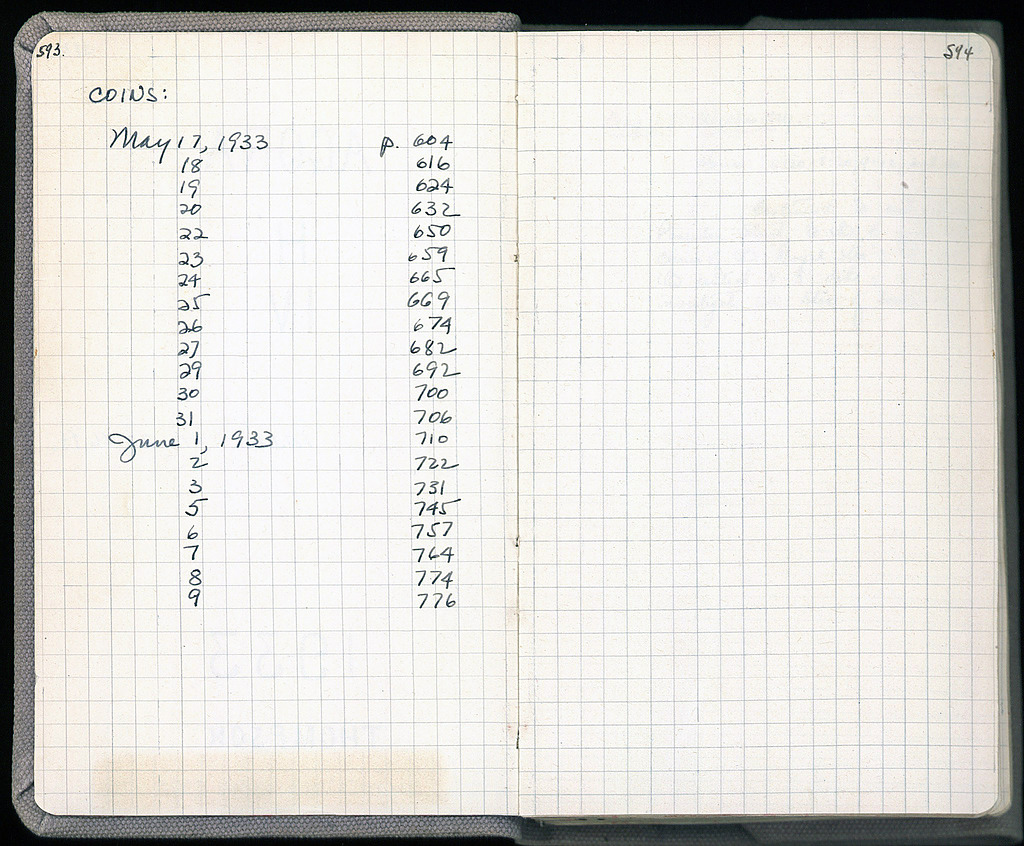 593.
COINS:
May 17, 1933 p. 604
18 616
19 624
20 632
22 650
23 659
24 665
25 669
26 674
27 682
29 692
30 700
31 706
June 1, 1933 710
2 722
3 731
5 745
6 757
7 764
8 774
9 776
594